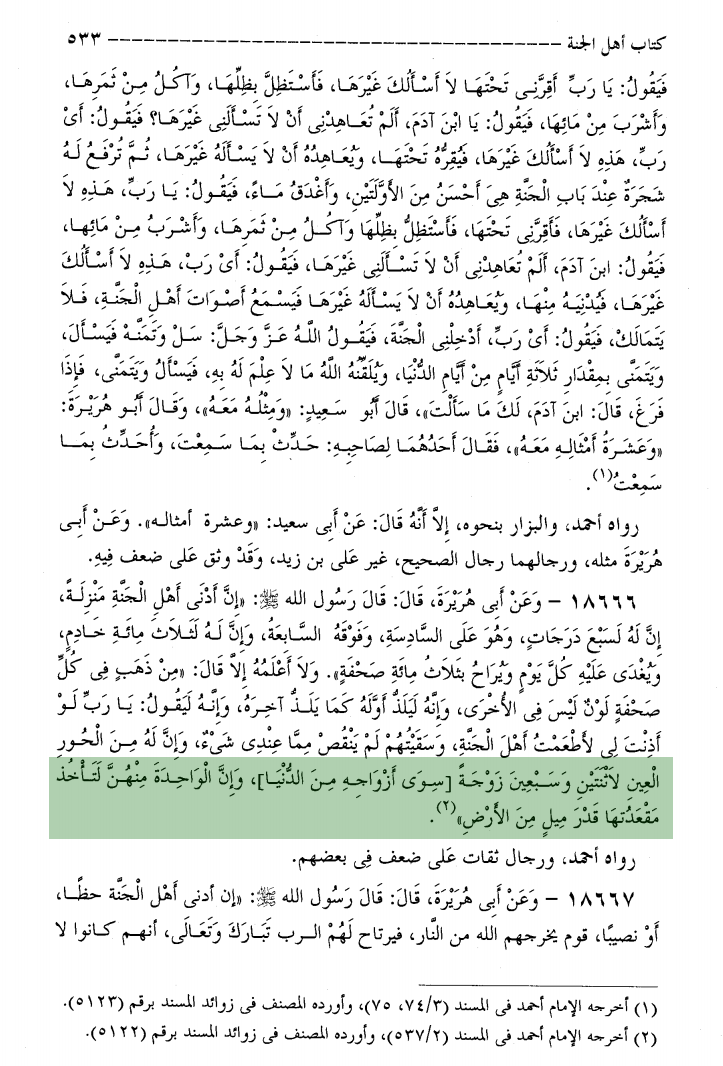 كتاب أهل الجنة ------------------------------------------ ٥٣٣
فَيَقُولُ: يَا رَبِّ أَقِرَّنِى تَحْتَهَا لاَ أَسْأَلُكَ غَيْرَهَا، فَأَسْتَظِلَّ بِظِلِّهَا، وَآكُلُ مِنْ ثَمَرِهَا،
وَأَشْرَبَ مِنْ مَائِهَا، فَيَقُولُ: يَا ابْنَ آدَمَ، أَلَمْ تُعَاهِدْنِى أَنْ لاَ تَسْأَلَنِى غَيْرَهَا؟ فَيَقُولُ: أَىْ
رَبِّ، هَذِهِ لاَ أَسْأَلُكَ غَيْرَهَا، فَيُقِرُّهُ تَحْتَهَا، وَيُعَاهِدُهُ أَنْ لاَ يَسْأَلَهُ غَيْرَهَا، ثُمَّ تُرْفَعُ لَهُ
شَجَرَةٌ عِنْدَ بَابِ الْجَنَّةِ هِىَ أَحْسَنُ مِنَ الأَوَّلَتَيْنِ، وَأَغْدَقُ مَاءً، فَيَقُولُ: يَا رَبِّ، هَذِهِ لاَ
أَسْأَلُكَ غَيْرَهَا، فَأَقِرَّنِى تَحْتَهَا، فَأَسْتَظِلُّ بِظِلِّهَا وَآكُلُ مِنْ ثَمَرِهَا، وَأَشْرَبُ مِنْ مَائِها،
فَيَقُولُ: ابنَ آدَمَ، أَلَمْ تُعَاهِدْنِى أَنْ لاَ تَسْأَلَنِى غَيْرَهَا، فَيَقُولُ: أَىْ رَبْ، هَذِهِ لاَ أَسْأَلُكَ
غَيْرَهَا، فَيُدْنِيَهُ مِنْهَا، وَيُعَاهِدُهُ أَنْ لاَ يَسْأَلَهُ غَيْرَهَا فَيَسْمَعُ أَصْوَاتَ أَهْلِ الْجَنَّةِ، فَلاَ
يَتَمَالَكْ، فَيَقُولُ: أَىْ رَبِّ، أَدْخِلْنِى الْجَنَّةَ، فَيَقُولُ اللَّهُ عَزَّ وَجَلَّ: سَلْ وَتَمَنَّهْ فَيَسْأَلَ،
وَيَتَمَنَّى بِمِقْدَارِ ثَلاَثَةِ أَيَّامٍ مِنْ أَيَّامِ الدُّنْيَا، وَيُلَقِّنُهُ اللَّهُ مَا لاَ عِلْمَ لَهُ بِهِ، فَيَسْأَلُ وَيَتَمَنَّى، فَإِذَا
فَرَغَ، قَالَ: ابنَ آدَمَ، لَكَ مَا سَأَلْتَ»، قَالَ أَبُو سَعِيدٍ: «وَمِثْلُهُ مَعَهُ»، وَقَالَ أَبُو هُرَيْرَةَ:
«وَعَشَرَةُ أَمْثَالِهِ مَعَهُ»، فَقَالَ أَحَدُهُمَا لِصَاحِبِهِ: حَدِّثْ بِمَا سَمِعْتَ، وَأُحَدِّثُ بِمَا
سَمِعْتُ(١).
رواه أحمد، والبزار بنحوه، إلاَّ أَنَّهُ قَالَ: عَنْ أَبى سعيد: «وعشرة أمثاله». وَعَنْ أَبِى
هُرَيْرَةَ مثله، ورجالهما رجال الصحيح، غير عَلى بن زيد، وَقَدْ وثق عَلى ضعف فِيهِ.
١٨٦٦٦ – وَعَنْ أَبى هُرَيْرَةَ، قَالَ: قَالَ رَسُول الله ﷺ: «إِنَّ أَدْنَى أَهْلِ الْجَنَّةِ مَنْزِلَةً،
إِنَّ لَهُ لَسَبْعَ دَرَجَاتٍ، وَهُوَ عَلَى السَّادِسَةِ، وَفَوْقَهُ السَّابِعَةُ، وَإِنَّ لَهُ لَثَلاَثَ مِائَةِ خَادِمٍ،
وَيُغْدَى عَلَيْهِ كُلَّ يَوْمٍ وَيُرَاحُ بِثَلاَثُ مِائَةِ صَحْفَةٍ». وَلاَ أَعْلَمُهُ إِلاَّ قَالَ: «مِنْ ذَهَبٍ فِى كُلِّ
صَحْفَةٍ لَوْنٌ لَيْسَ فِى الأُخْرَى، وَإِنَّهُ لَيَلَذُّ أَوَّلَهُ كَمَا يَلَذُّ آخِرَهُ، وَإِنَّهُ لَيَقُولُ: يَا رَبِّ لَوْ
أَذِنْتَ لِى لأَطْعَمْتُ أَهْلَ الْجَنَّةِ، وَسَقَيْتُهُمْ لَمْ يَنْقُصْ مِمَّا عِنْدِى شَىْءٌ، وَإِنَّ لَهُ مِنَ الْحُورِ
الْعِينِ لاَثْنَتَيْنِ وَسَبْعِينَ زَوْجَةً [سِوَى أَزْوَاجِهِ مِنَ الدُّنْيَا]، وَإِنَّ الْوَاحِدَةَ مِنْهُنَّ لَتَأْخُذُ
مَقْعَدَتهَا قَدْرَ مِيلٍ مِنَ الأَرْضِ»(٢).
رواه أحمد، ورجال ثقات عَلى ضعف فِى بعضهم.
١٨٦٦٧ – وَعَنْ أَبى هُرَيْرَةَ، قَالَ: قَالَ رَسُول الله ﷺ: «إن أدنى أَهْل الْجَنَّة حظًا،
أَوْ نصيبًا، قوم يخرجهم الله من النَّار، فيرتاح لَهُمْ الرب تَبَارَكَ وَتَعَالَى، أنهم كانوا لا
(١) أخرجه الإمام أحمد فى المسند (٧٤/٣، ٧٥)، وأورده المصنف فى زوائد المسند برقم (٥١٢٣).
(٢) أخرجه الإمام أحمد فى المسند (٥٣٧/٢)، وأورده المصنف فى زوائد المسند برقم (٥١٢٢).